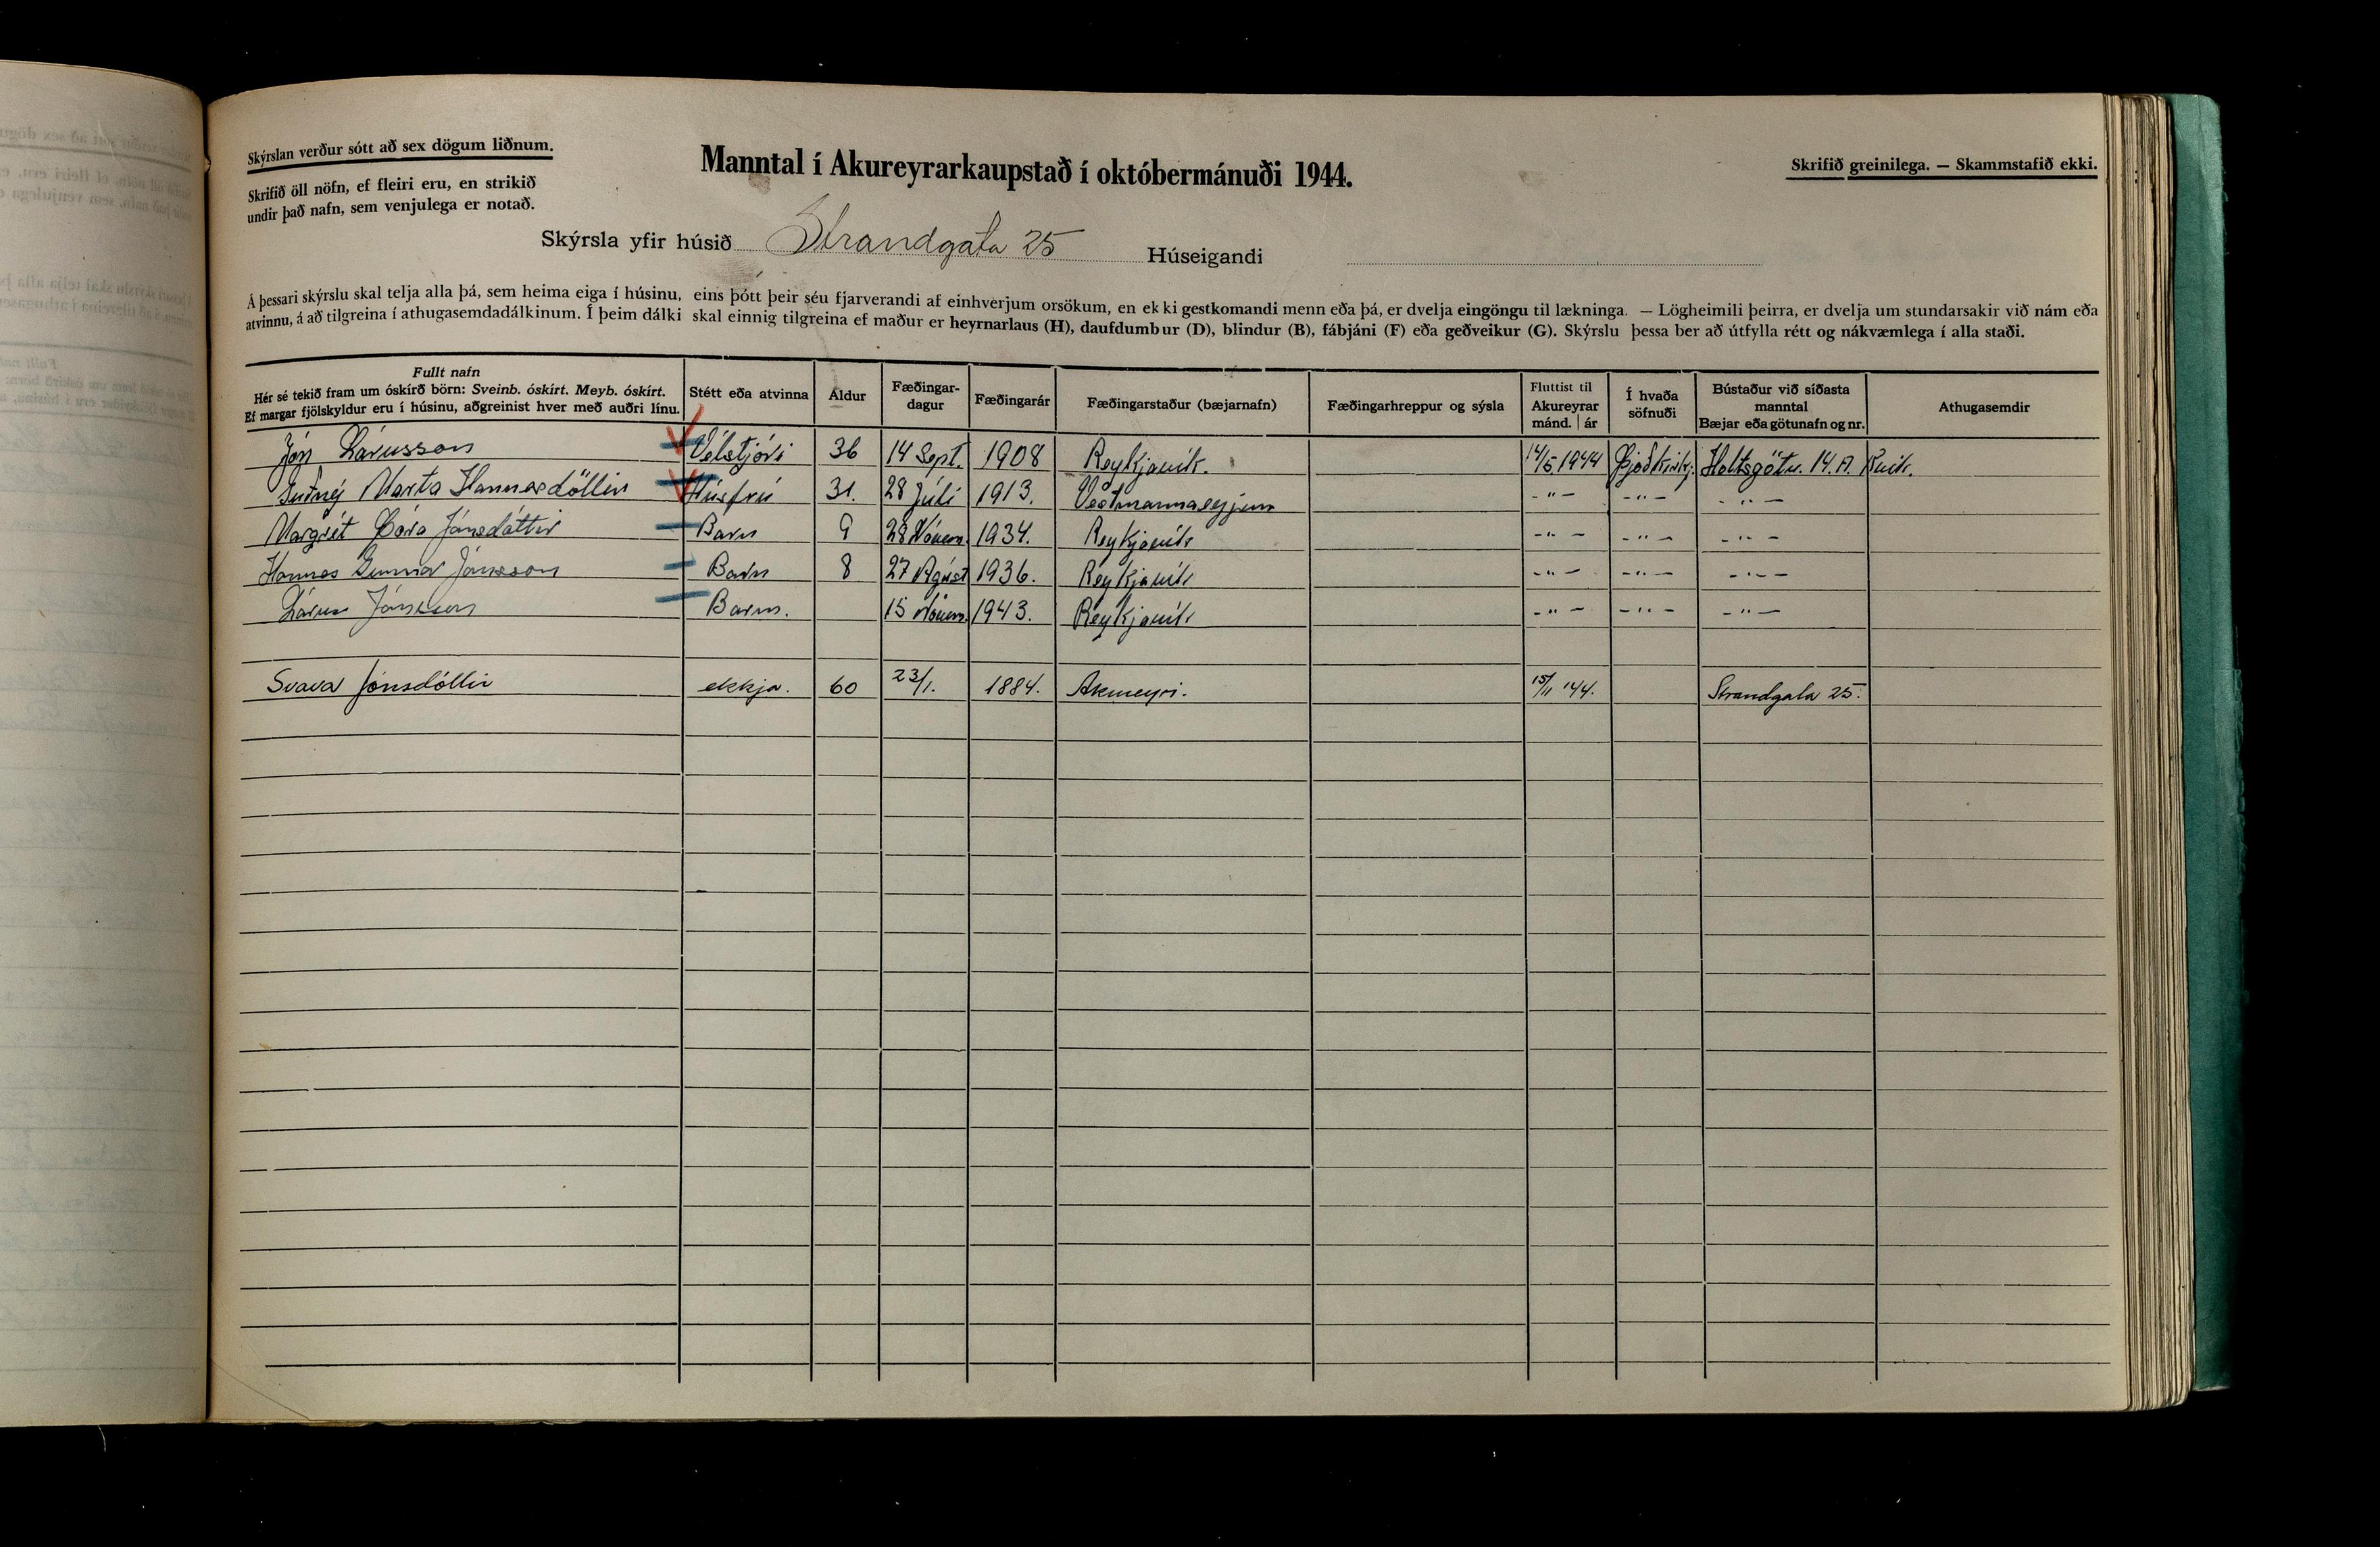 Skýrslan verður sótt að sex dögum liðnum.
Skrifið öll nöfn, ef fleiri eru, en strikið
undir það nafn, sem venjulega er notað.
Manntal í Akureyrarkaupstað í októbermánuði 1944.
Skrifið greinilega. — Skammstafið ekki.
Skýrsla yfir húsið Strandgata 25 Húseigandi
Á þessari skýrslu skal telja alla þá, sem heima eiga í húsinu, eins þótt þeir séu fjarverandi af einhverjum orsökum, en ekki gestkomandi menn eða þá, er dvelja eingöngu til lækninga. — Lögheimili þeirra, er dvelja um stundarsakir við nám eða
atvinnu, á að tilgreina í athugasemdadálkinum. Í þeim dálki skal einnig tilgreina ef maður er heyrnarlaus (H), daufdumbur (D), blindur (B), fábjáni (F) eða geðveikur (G). Skýrslu þessa ber að útfylla rétt og nákvæmlega í alla staði.
Fullt nafn
Hér sé tekið fram um óskírð börn: Sveinb. óskírt. Meyb. óskírt.
Ef margar fjölskyldur eru í húsinu, aðgreinist hver með auðri línu.
Stétt eða atvinna
Aldur
Fæðingar-
dagur
Fæðingarár
Fæðingarstaður (bæjarnafn)
Fæðingarhreppur og sýsla
Fluttist til
Akureyrar
mánd. ár
Í hvaða
söfnuði
Bústaður við síðasta
manntal
Bæjar eða götunafn og nr.
Athugasemdir
Jón Lárusson Vélstjóri 36 14 Sept. 1908 Reykjavík. 14/5 1944 Þjóðkirkj. Holtsgötu. 14. A. Rvík.
Guðný Marta Hannesdóttir Húsfrú 31. 28 Júlí 1913. Vestmannaeyjum -"- -"- -"-
Margrét Þóra Jónsdóttir Barn 9 28 Nóvem. 1934. Reykjavík -"- -"- -"-
Hannes Gunnar Jónsson Barn 8 27 Ágúst 1936. Reykjavík -"- -"- -"-
Lárus Jónsson Barn. 15 Nóvem. 1943. Reykjavík -"- -"- -"-
Svava Jónsdóttir ekkja. 60 23/1. 1884. Akureyri. 15/11 '44. Strandgata 25.